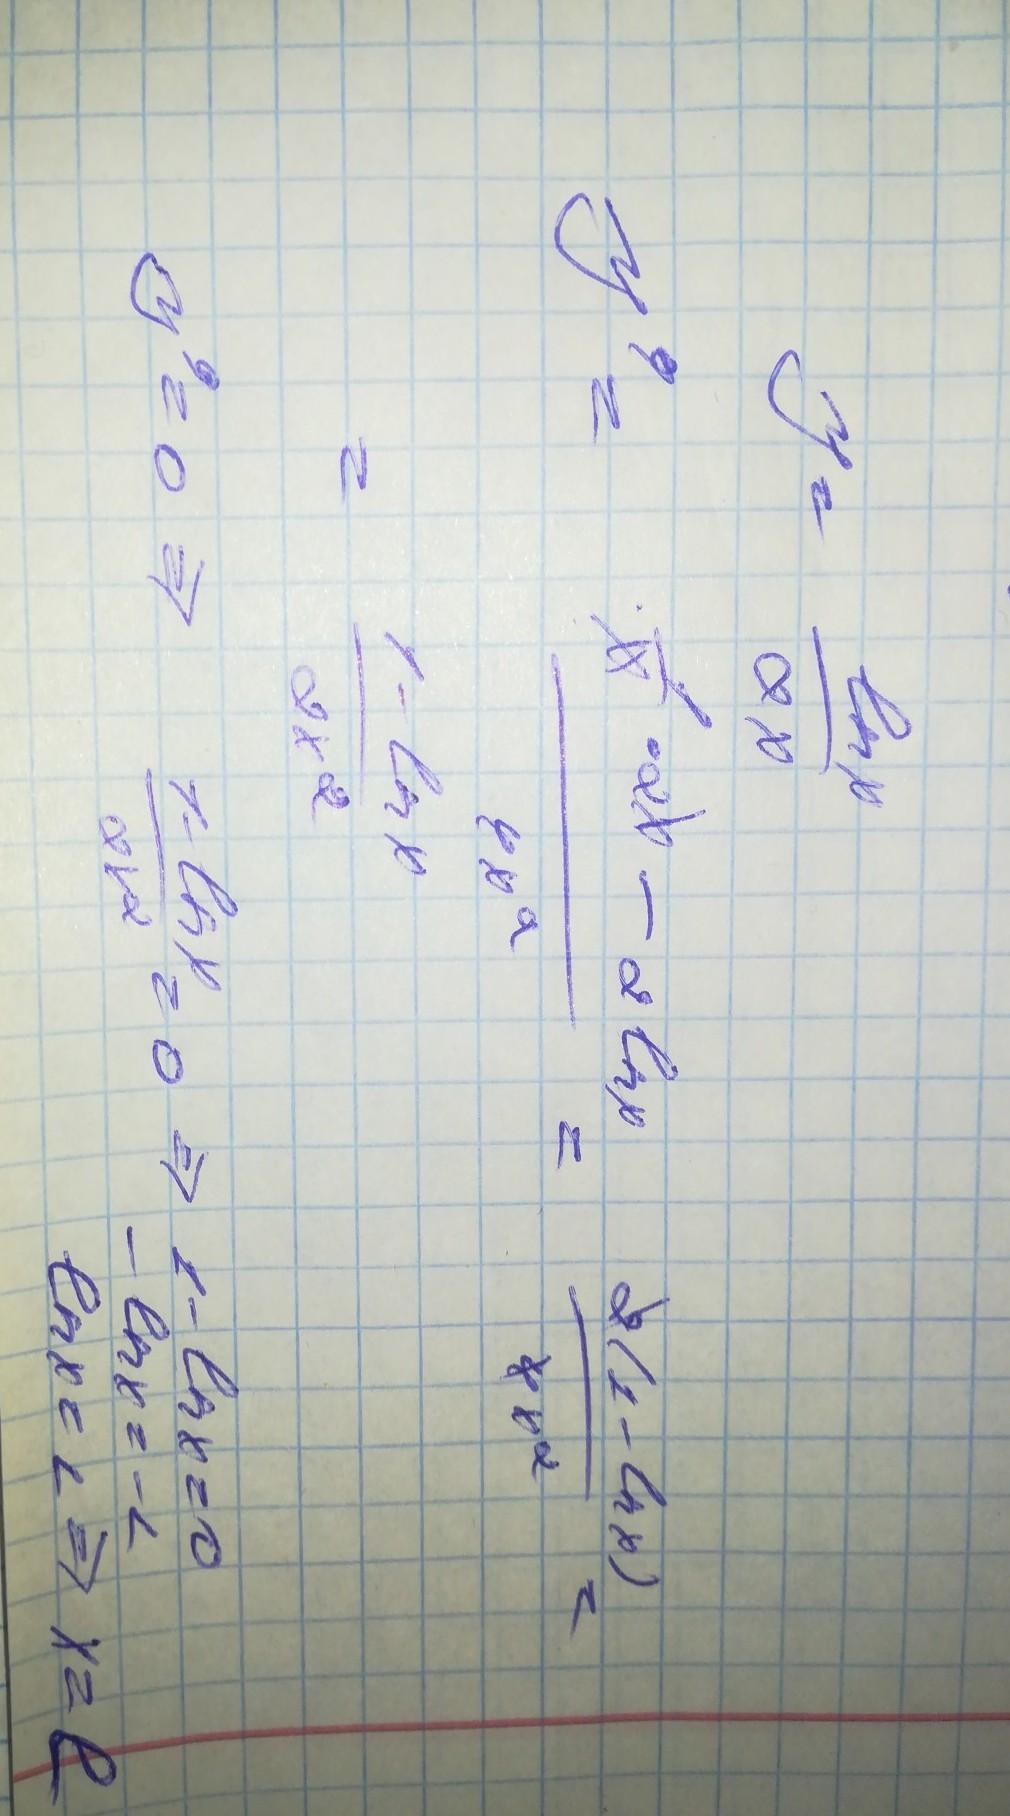 y = lnx / 2x
y' = (1/x · 2x − 2lnx) / 4x² = 2(1 − lnx) / 4x² =
= (1 − lnx) / 2x²
y' = 0 ⇒ (1 − lnx) / 2x² = 0 ⇒ 1 − lnx = 0
− lnx = −1
lnx = 1 ⇒ x = e